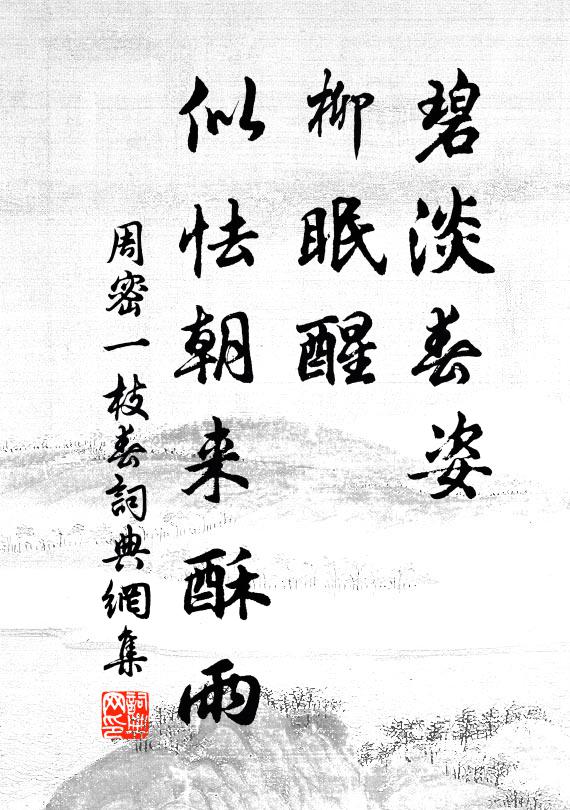 碧淡春姿
柳眠醒
似怯朝来酥雨
周密一枝春詞典網集